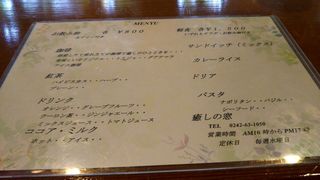 MENU
お飲み物 各 ¥500
珈琲
アイス珈琲
紅茶
ハイビスカス・ハーブ・・
プレーン・・
ドリンク
オレンジ・グレープフルーツ・・
ウーロン茶・ジンジャエール・・
ミックスジュース・トマトジュース
ココア・ミルク
ホット・・アイス・・
軽食 各¥1,500
サンドイッチ(ミックス)
カレーライス
ドリア
パスタ
ナポリタン・・バジル・・
シーフード・・
癒しの窓
TEL 0242-63-1050
営業時間 AM10時からPM17
定休日 毎週水曜日